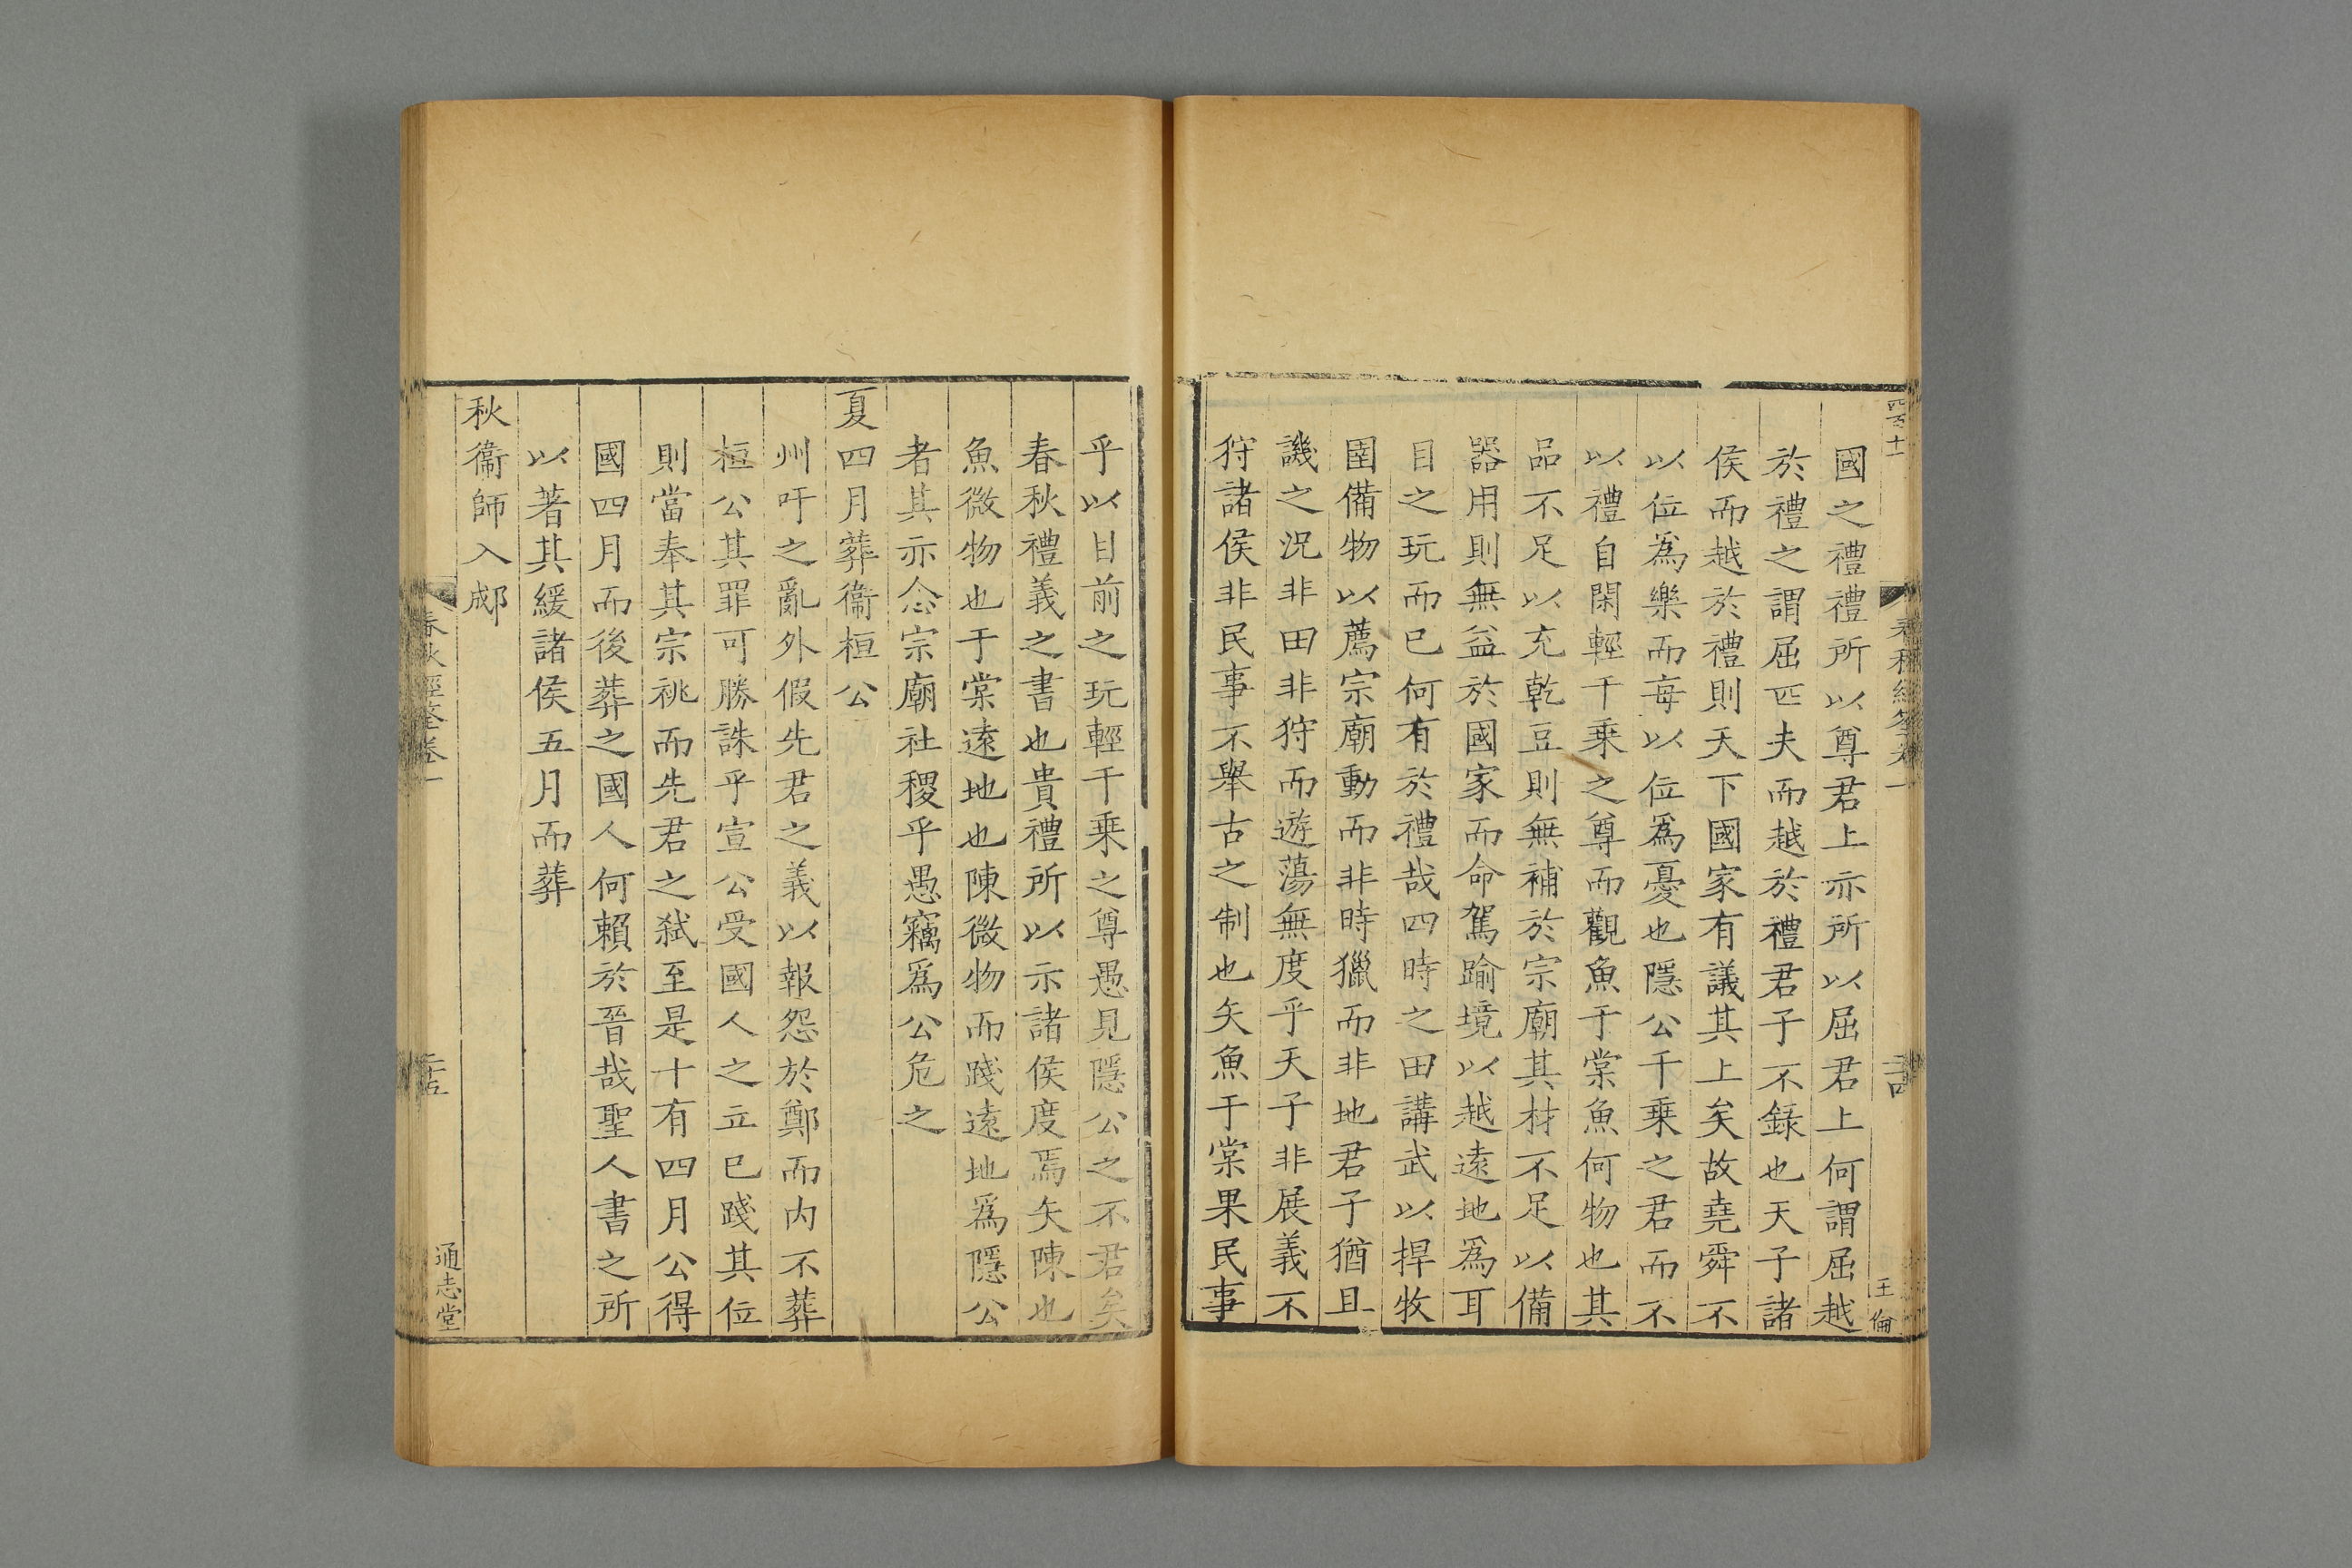 四百十
春秋經筌卷一
王倫
國之禮禮所以尊君上亦所以屈君上何謂屈越
於禮之謂屈匹夫而越於禮君子不錄也天子諸
侯而越於禮則天下國家有議其上矣故堯舜不
以位爲樂而每以位爲憂也隱公千乗之君而不
以禮自閑輕千乗之尊而觀魚于棠魚何物也其
品不足以充乾豆則無補於宗廟其材不足以備
器用則無益於國家而命駕踰境以越遠地爲耳
目之玩而已何有於禮哉四時之田講武以捍牧
圉備物以薦宗廟動而非時獵而非地君子猶且
譏之況非田非狩而遊蕩無度乎天子非展義不
狩諸侯非民事不舉古之制也矢魚于棠果民事
乎以目前之玩輕千乗之尊愚見隱公之不君矣
春秋禮義之書也貴禮所以示諸侯度焉矢陳也
魚微物也于棠遠地也陳微物而踐遠地爲隱公
者其亦念宗廟社稷乎愚竊爲公危之
夏四月葬衞桓公
州吁之亂外假先君之義以報怨於鄭而内不葬
桓公其罪可勝誅乎宣公受國人之立已踐其位
則當奉其宗祧而先君之弑至是十有四月公得
國四月而後葬之國人何賴於晉哉聖人書之所
以著其緩諸侯五月而葬
秋衞師入郕
春秋經筌卷一
二十五
通志堂